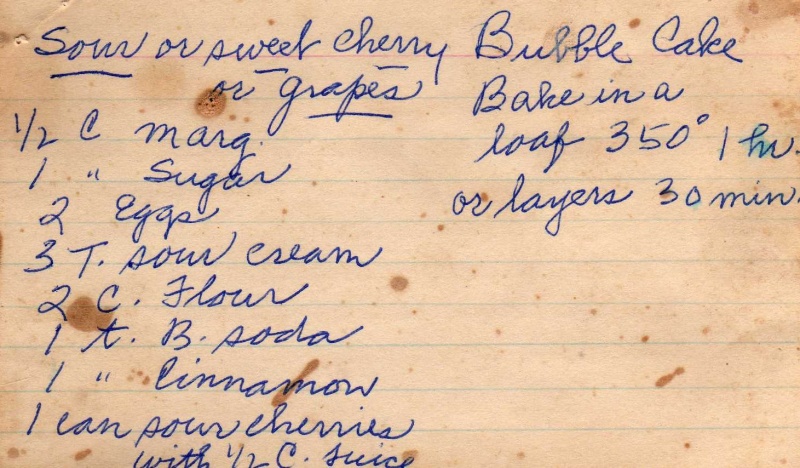 Sour or sweet cherry Bubble Cake
or grapes
1/2 C marg.
1 " Sugar
2 Eggs
3 T. sour cream
2 C. Flour
1 t. B. soda
1 " Cinnamon
1 can sour cherries
with 1/2 C. juice
Bake in a
loaf 350° 1 hr.
or layers 30 min.